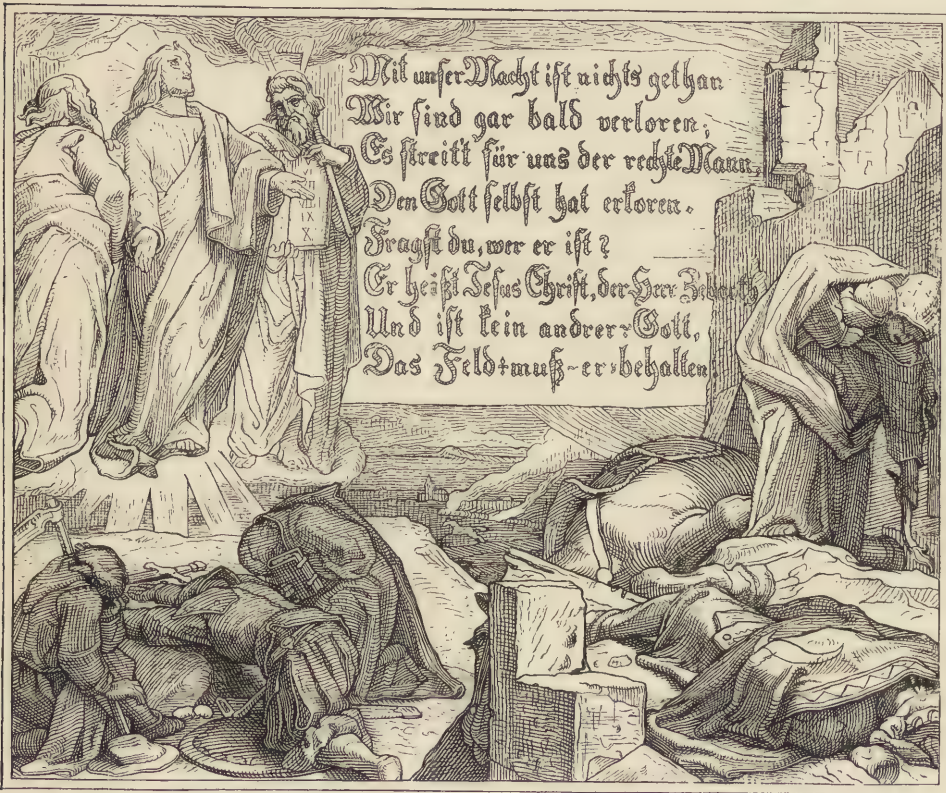 Mit unser Macht ist nichts gethan
Wir sind gar bald verloren;
Es streitt für uns der rechte Mann,
Den Gott selbst hat erkoren.
Fragst du, wer er ist?
Er heißt Jesus Christ, der Herr Zebaoth
Und ist kein andrer Gott,
Das Feld muß er behalten!
IX
X